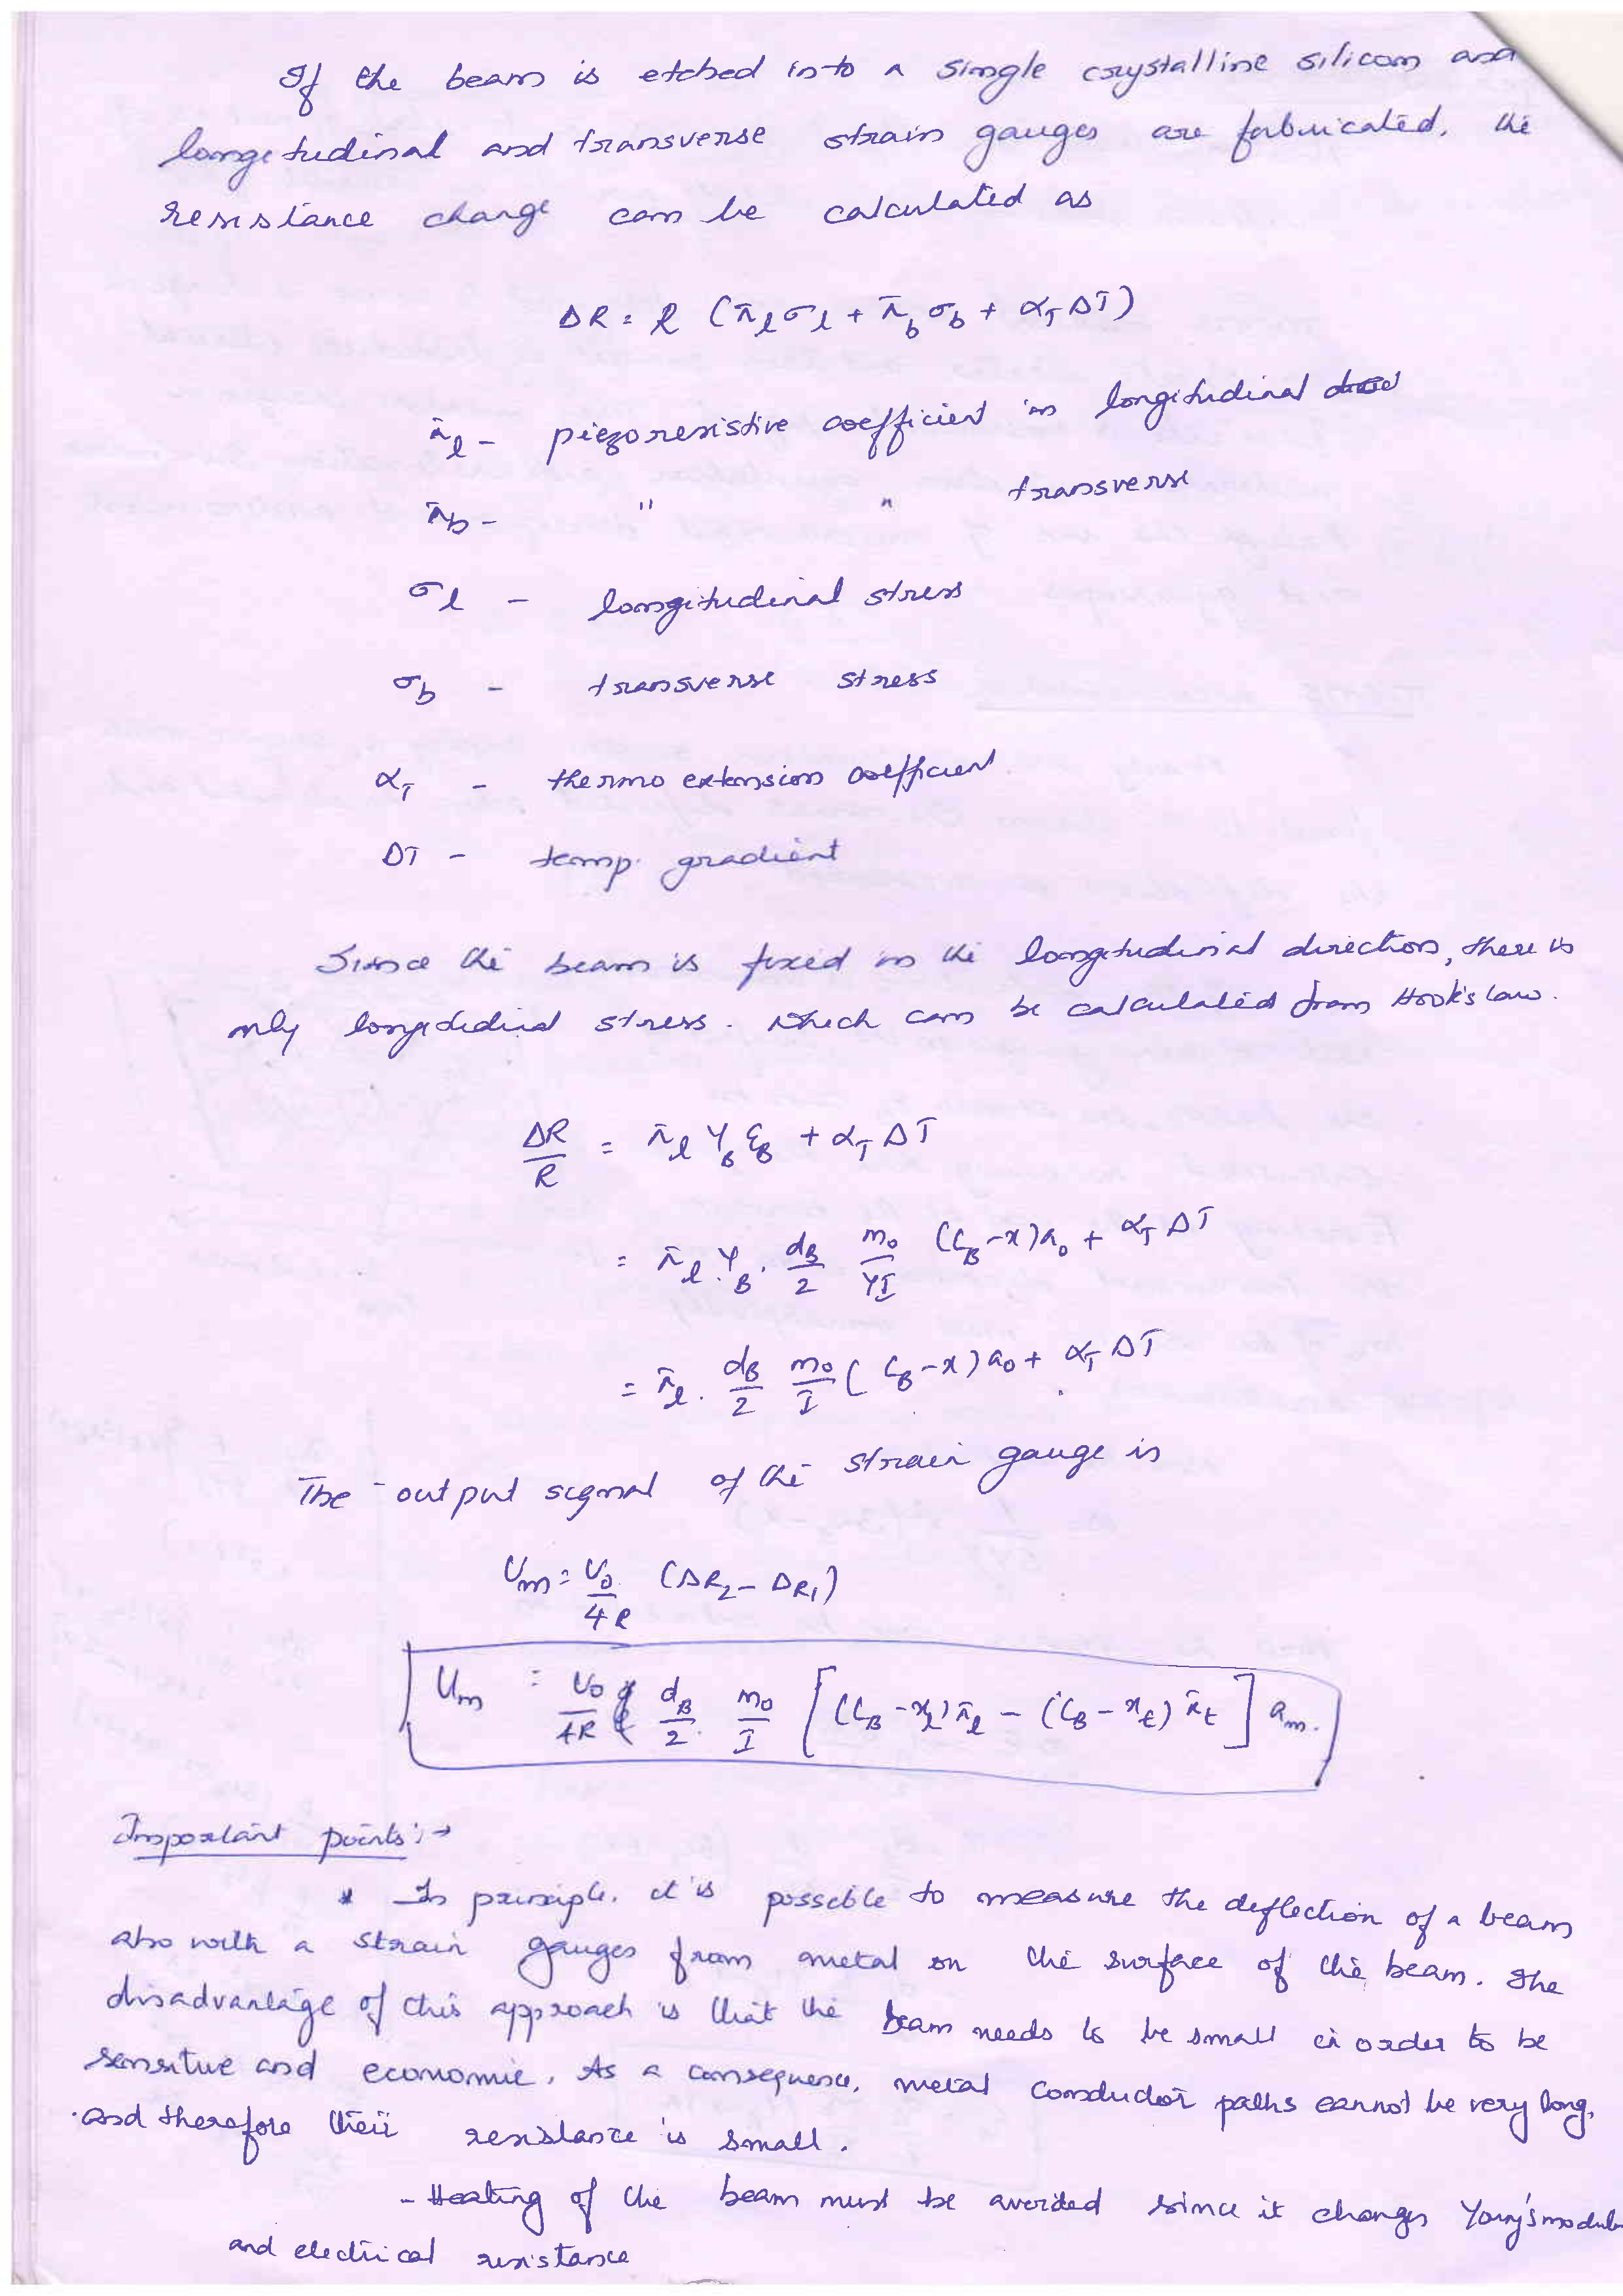 If the beam is etched into a single crystalline silicon and
longitudinal and transverse strain gauges are fabricated, the
resistance change can be calculated as
ΔR = R (π̄_l σ_l + π̄_b σ_b + α_T ΔT)
π̄_l – piezoresistive coefficient in longitudinal
π̄_b – " " transverse
σ_l – longitudinal stress
σ_b – transverse stress
α_T – thermo extension coefficient.
ΔT – temp. gradient
Since the beam is fixed in the longitudinal direction, there is
only longitudinal stress. which can be calculated from Hook's law.
ΔR/R = π̄_l Y_B ε_B + α_T ΔT
= π̄_l . Y_B . d_B/2 m_0/YI (L_B - x) a_0 + α_T ΔT
= π̄_l . d_B/2 m_0/I (L_B - x) a_0 + α_T ΔT
The output signal of the strain gauge is
U_m = U_0/4R (ΔR_2 - ΔR_1)
U_m = U_0/4R d_B/2 . m_0/I [(L_B - x_l) π̄_l - (L_B - x_t) π̄_t] a_m.
Important points :→
* In principle, it is possible to measure the deflection of a beam
also with a strain gauges from metal on the surface of the beam. The
disadvantage of this approach is that the beam needs to be small in order to be
sensitive and economic. As a consequence, metal conductor paths cannot be very long,
and therefore their resistance is small.
- Heating of the beam must be avoided since it changes Young's modulu
and electrical resistance